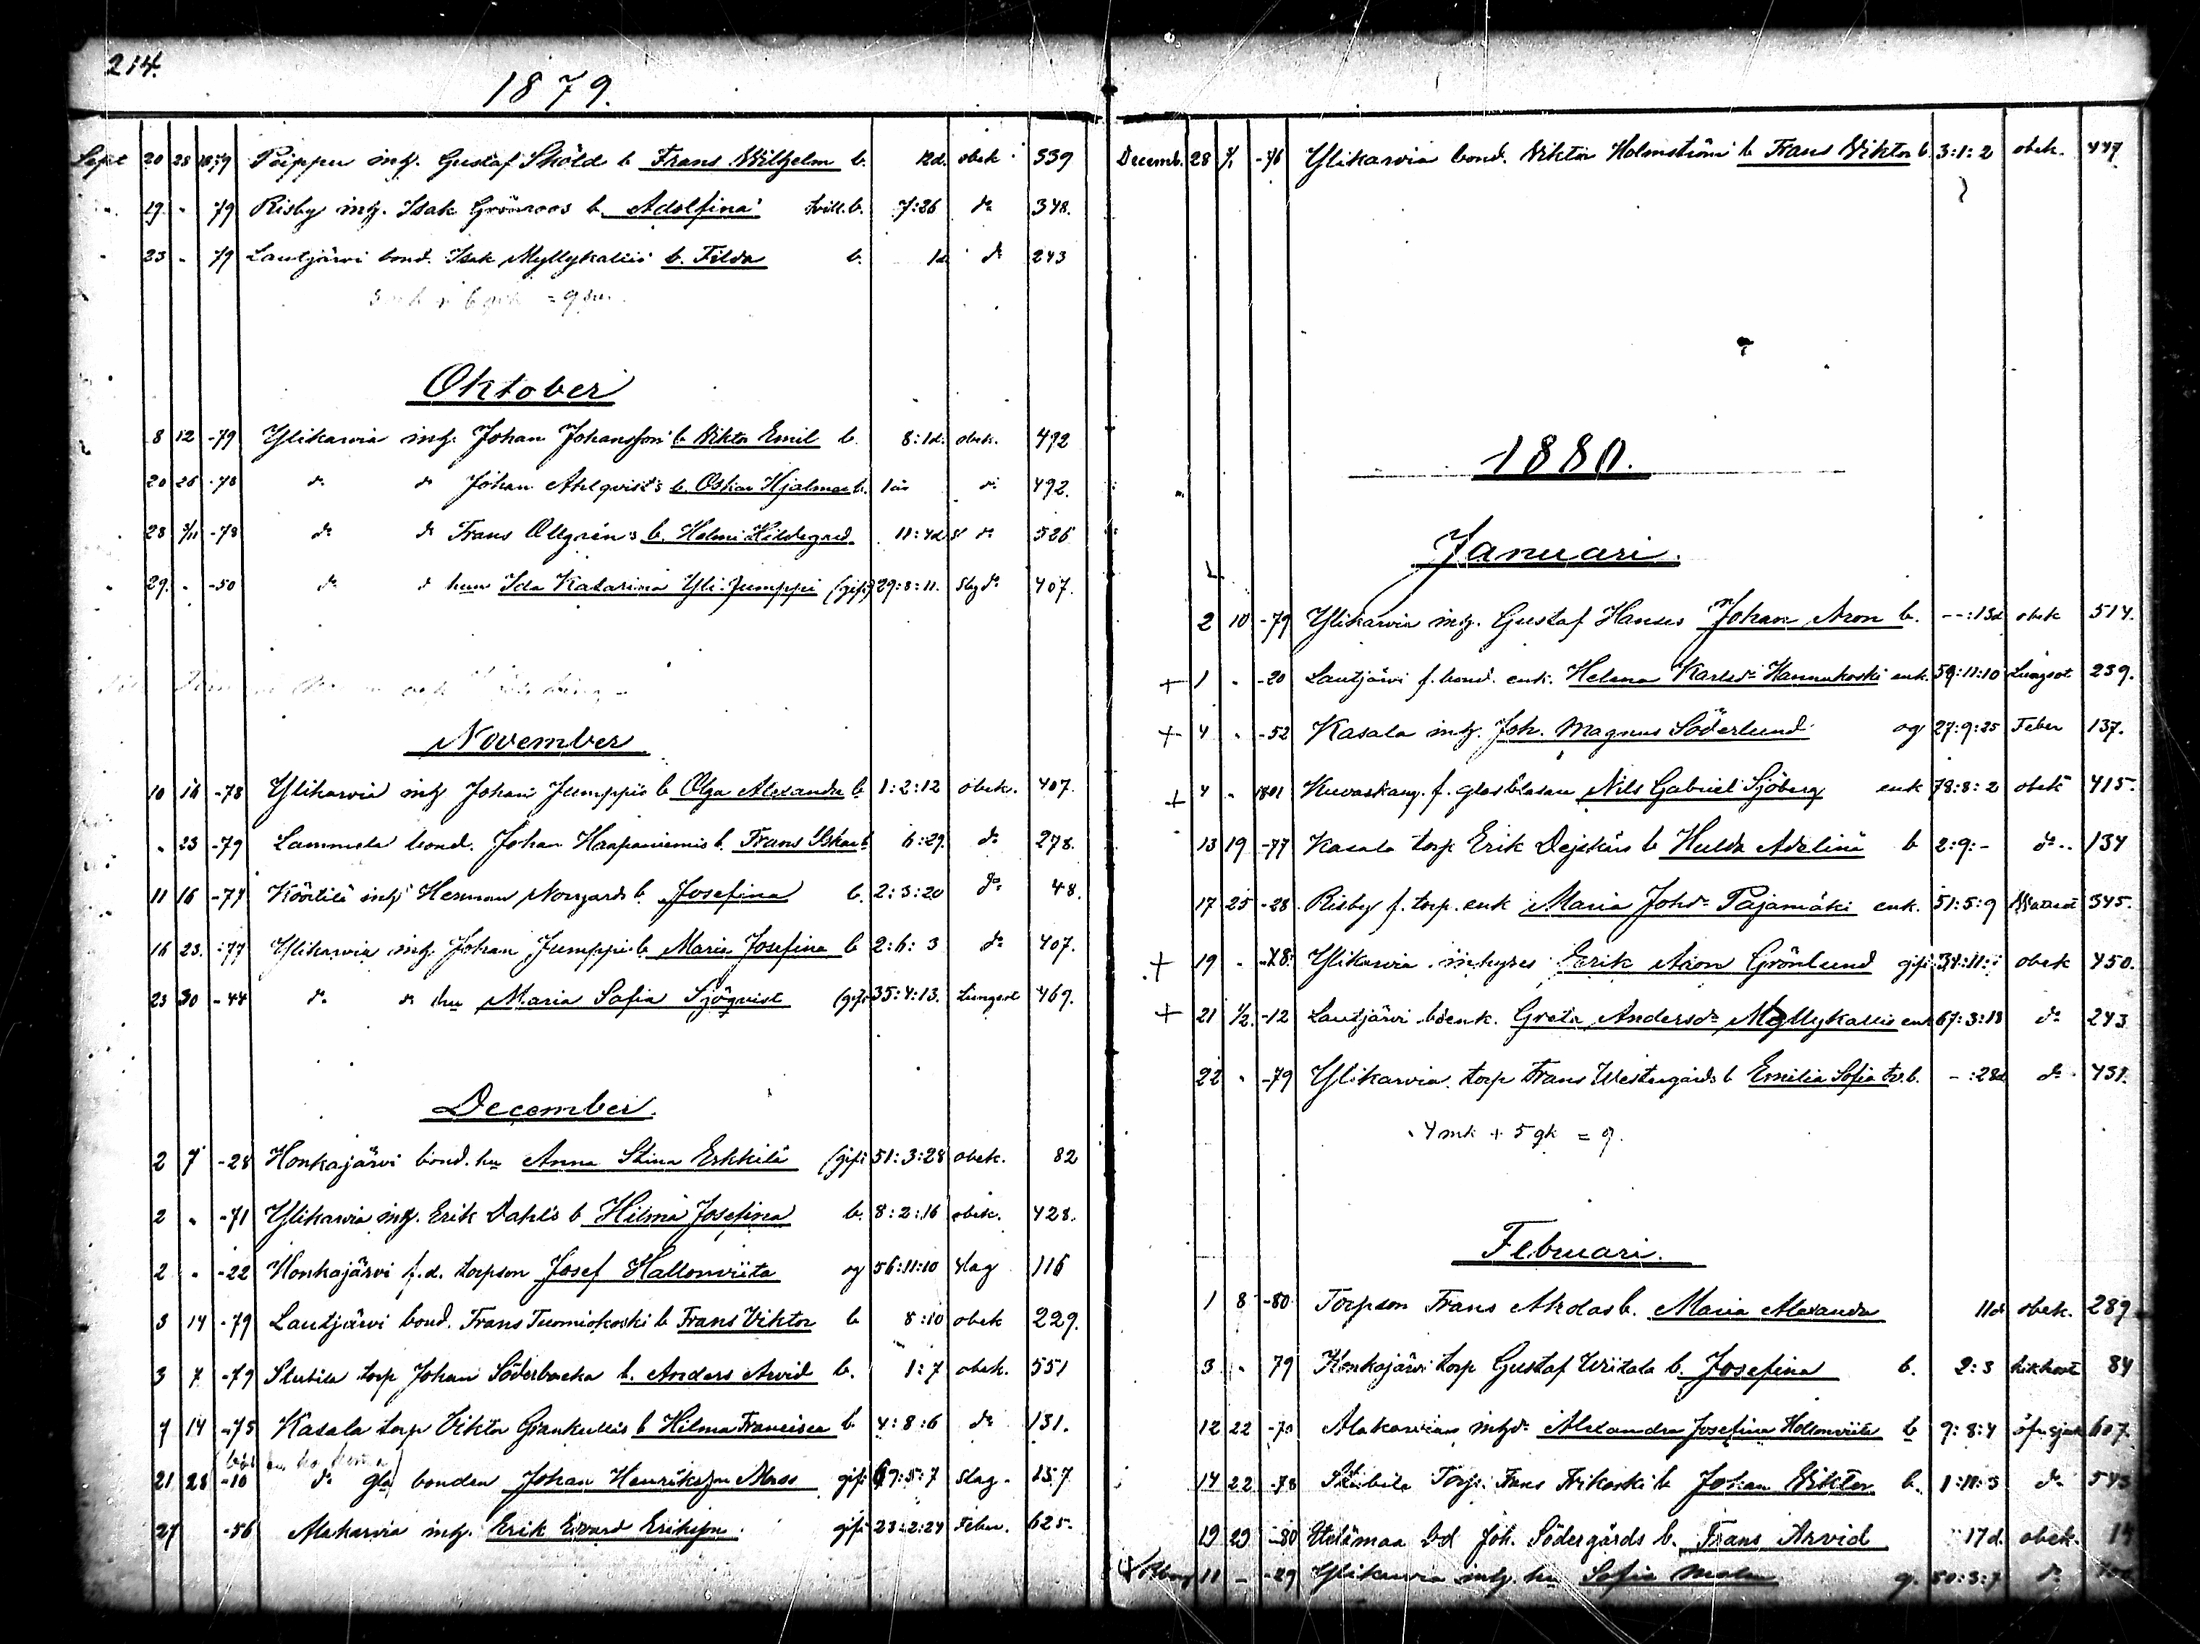 214.
1879.
Sept 20 28 1879 Poippu inhy. Gustaf Sköld b Frans Wilhelm b. 12d. obek. 539
19 " 79 Risby inhy. Isak Grönroos b. Adolfina tvill. b. 7:26 do 348.
23 " 79 Lautjärvi bond. Isak Myllykallis b. Filda b. 1d do 243
Oktober
8 12 -79 Ylikarvia inhy. Johan Johansson b Viktor Emil b. 8:1d. obek. 492
20 26 -78 do do Johan Ahlqvists b. Oskar Hjalmar b. 1 år do 492.
28 9/11 -78 do do Frans Ollgrén's b. Helmi Hildegard. 11:4d do 526
29. " -50 do d hun Ida Katarina Yli-Jumppi (gift) 29:8:11. slag do 407.
November
10 16 -78 Ylikarvia inhy Johan Jumppis b Olga Alexandra b 1:2:12 obek. 407.
" 23 -79 Lammela bond. Johan Haapaniemis b. Frans Oskar b. 6:29. do 278.
11 16 -77 Köörtilä inhy Herman Norrgards b. Josefina b. 2:3:20 do 48.
16 23. -77 Ylikarvia inhy. Johan Jumppi b Maria Josefina b 2:6:3 do 407.
23 30 -44 do do hu Maria Sofia Sjöqvist (gift 35:4:13. Lungsot 469.
December.
2 7 -28 Honkajärvi bond. hu Anna Stina Erkkilä (gift 51:3:28 obek. 82
2 " -71 Ylikarvia inhy. Erik Dahls b Hilma Josefina b. 8:2:16 obek. 428.
2 " -22 Honkajärvi f.d. torpson Josef Hallonwiita og 56:11:10 slag 116
3 14 -79 Lautjärvi bond. Frans Tuomiokoski b Frans Viktor b 8:10 obek 229.
3 7 -79 Stubila torp Johan Söderbacka b. Anders Arvid b. 1:7 obek. 551
7 14 -75 Kasala torp Viktor Grankullas b Hilma Francisca b 4:8:6 do 131.
21 28 -10 do gla bonden Johan Henriksson Mass gift 69:5:7 slag. 157
27 -56 Alakarvia inhy. Erik Edvard Eriksson gift 23:2:24 Feber. 625.
Decemb. 28 -76 Ylikarvia bond. Viktor Holmströms b Frans Viktor b. 3:1:2 obek. 447
1880.
Januari.
2 10 -79 Ylikarvia inhy. Gustaf Hanses Johan Aron b. --:13d obek 514.
+ 1 " -20 Lautjärvi f. bond. enk. Helena Karlsd. Hannukoski enk. 59:11:10 Lungsot 239.
+ 4 " -52 Kasala inhy. Joh. Magnus Söderlund og 27:9:25 Feber 137.
+ 4 " 1801 Kuvaskang. f. glasblasare Nils Gabriel Sjöberg enk 78:8:2 obek 415.
13 19 -77 Kasala torp Erik Dejskärs b Hulda Adelina b 2:9:- do 134
17 25 -28 Risby f. torp. enk Maria Johsdr Pajamäki enk. 51:5:9 345.
+ 19 " -48. Ylikarvia inhyses Eerik Aron Grönlund gift 31:11: obek 450.
+ 21 1/2. -12 Lautjärvi bdenk. Greta Andersdr Myllykallis enk 67:3:18 do 243
22 " -79 Ylikarvia torp Frans Westergårds b Emilia Sofia tv. b. -:28d do 431.
4 mk + 5 gk = 9.
Februari.
1 8 -80 Torpson Frans Aholas b. Maria Alexandra 11d obek. 289
3 " 79 Honkajärvi torp Gustaf Wiitala b. Josefina b. 2:3 kikhosta 84
12 22 -70 Alakarvia inhy Alexandra Josefina Hallonwiita b 9:8:4 607.
14 22 -78 Stubila Torp. Frans b Johan Viktor b. 1:11:3 do 543
19 29 -80 bd Joh. Södergårds b. Frans Arvid 17d. obek. 14
11 - -29 Ylikarvia inhy. hu Sofia g. 50:3:7 do